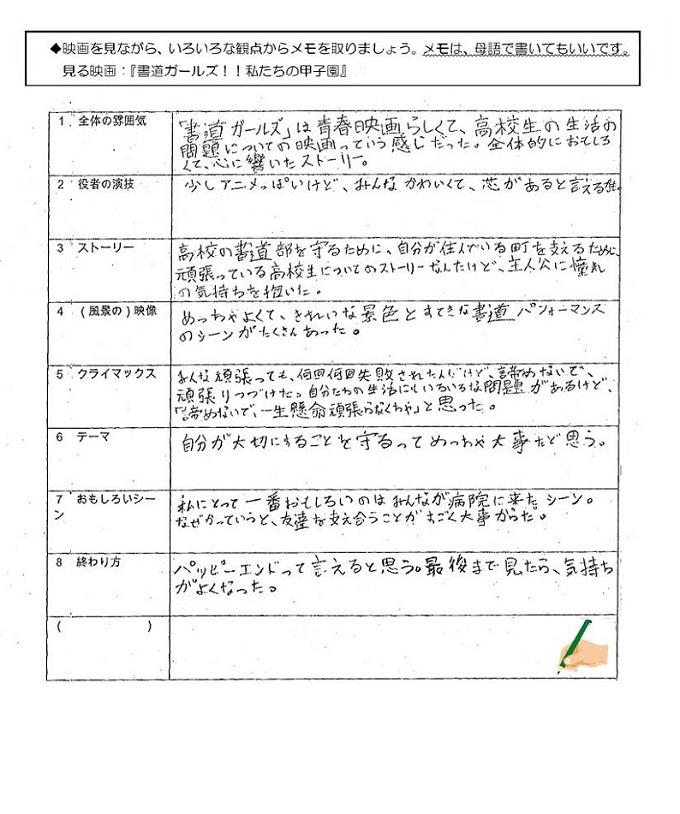 ◆映画を見ながら、いろいろな観点からメモを取りましょう。メモは、母語で書いてもいいです。
見る映画：『書道ガールズ！！私たちの甲子園』
1 全体の雰囲気
「書道ガールズ」は青春映画らしくて、高校生の生活の
問題についての映画っていう感じだった。全体的におもしろ
くて、心に響いたストーリー。
2 役者の演技
少しアニメっぽいけど、みんなかわいくて、芯があると言える
3 ストーリー
高校の書道部を守るために、自分が住んでいる町を支えるために、
頑張っている高校生についてのストーリーなんだけど、主人公に憧れ
の気持ちを抱いた。
4 (風景の)映像
めっちゃよくて、きれいな景色とすてきな書道パフォーマンス
のシーンがたくさんあった。
5 クライマックス
みんな頑張っても、何回何回失敗されたんだけど、諦めないで、
頑張りつづけた。自分たちの生活にもいろいろな問題があるけど、
「諦めないで、一生懸命頑張らなくちゃ」と思った。
6 テーマ
自分が大切にすることを守るってめっちゃ大事だと思う。
7 おもしろいシー
ン
私にとって一番おもしろいのはみんなが病院に来たシーン。
なぜかっていうと、友達を支え合うことがすごく大事からた。
8 終わり方
パッピーエンドって言えると思う。最後まで見たら、気持ち
がよくなった。
( )